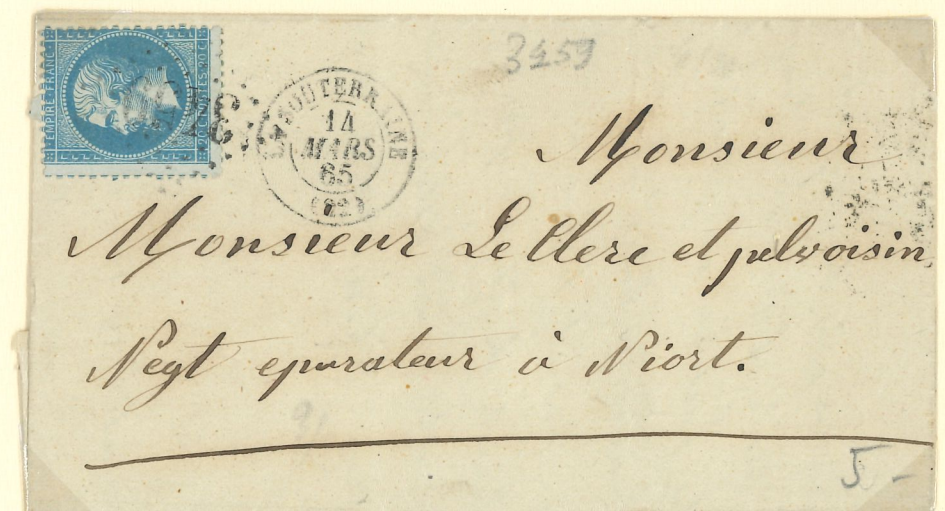 EMPIRE FRANC
20 C POSTES 20 C
3459
LA SOUTERRAINE
14
MARS
65
(22)
Monsieur
Monsieur Le Clerc et pelvoisin
Negt epurateur à Niort.
5 -